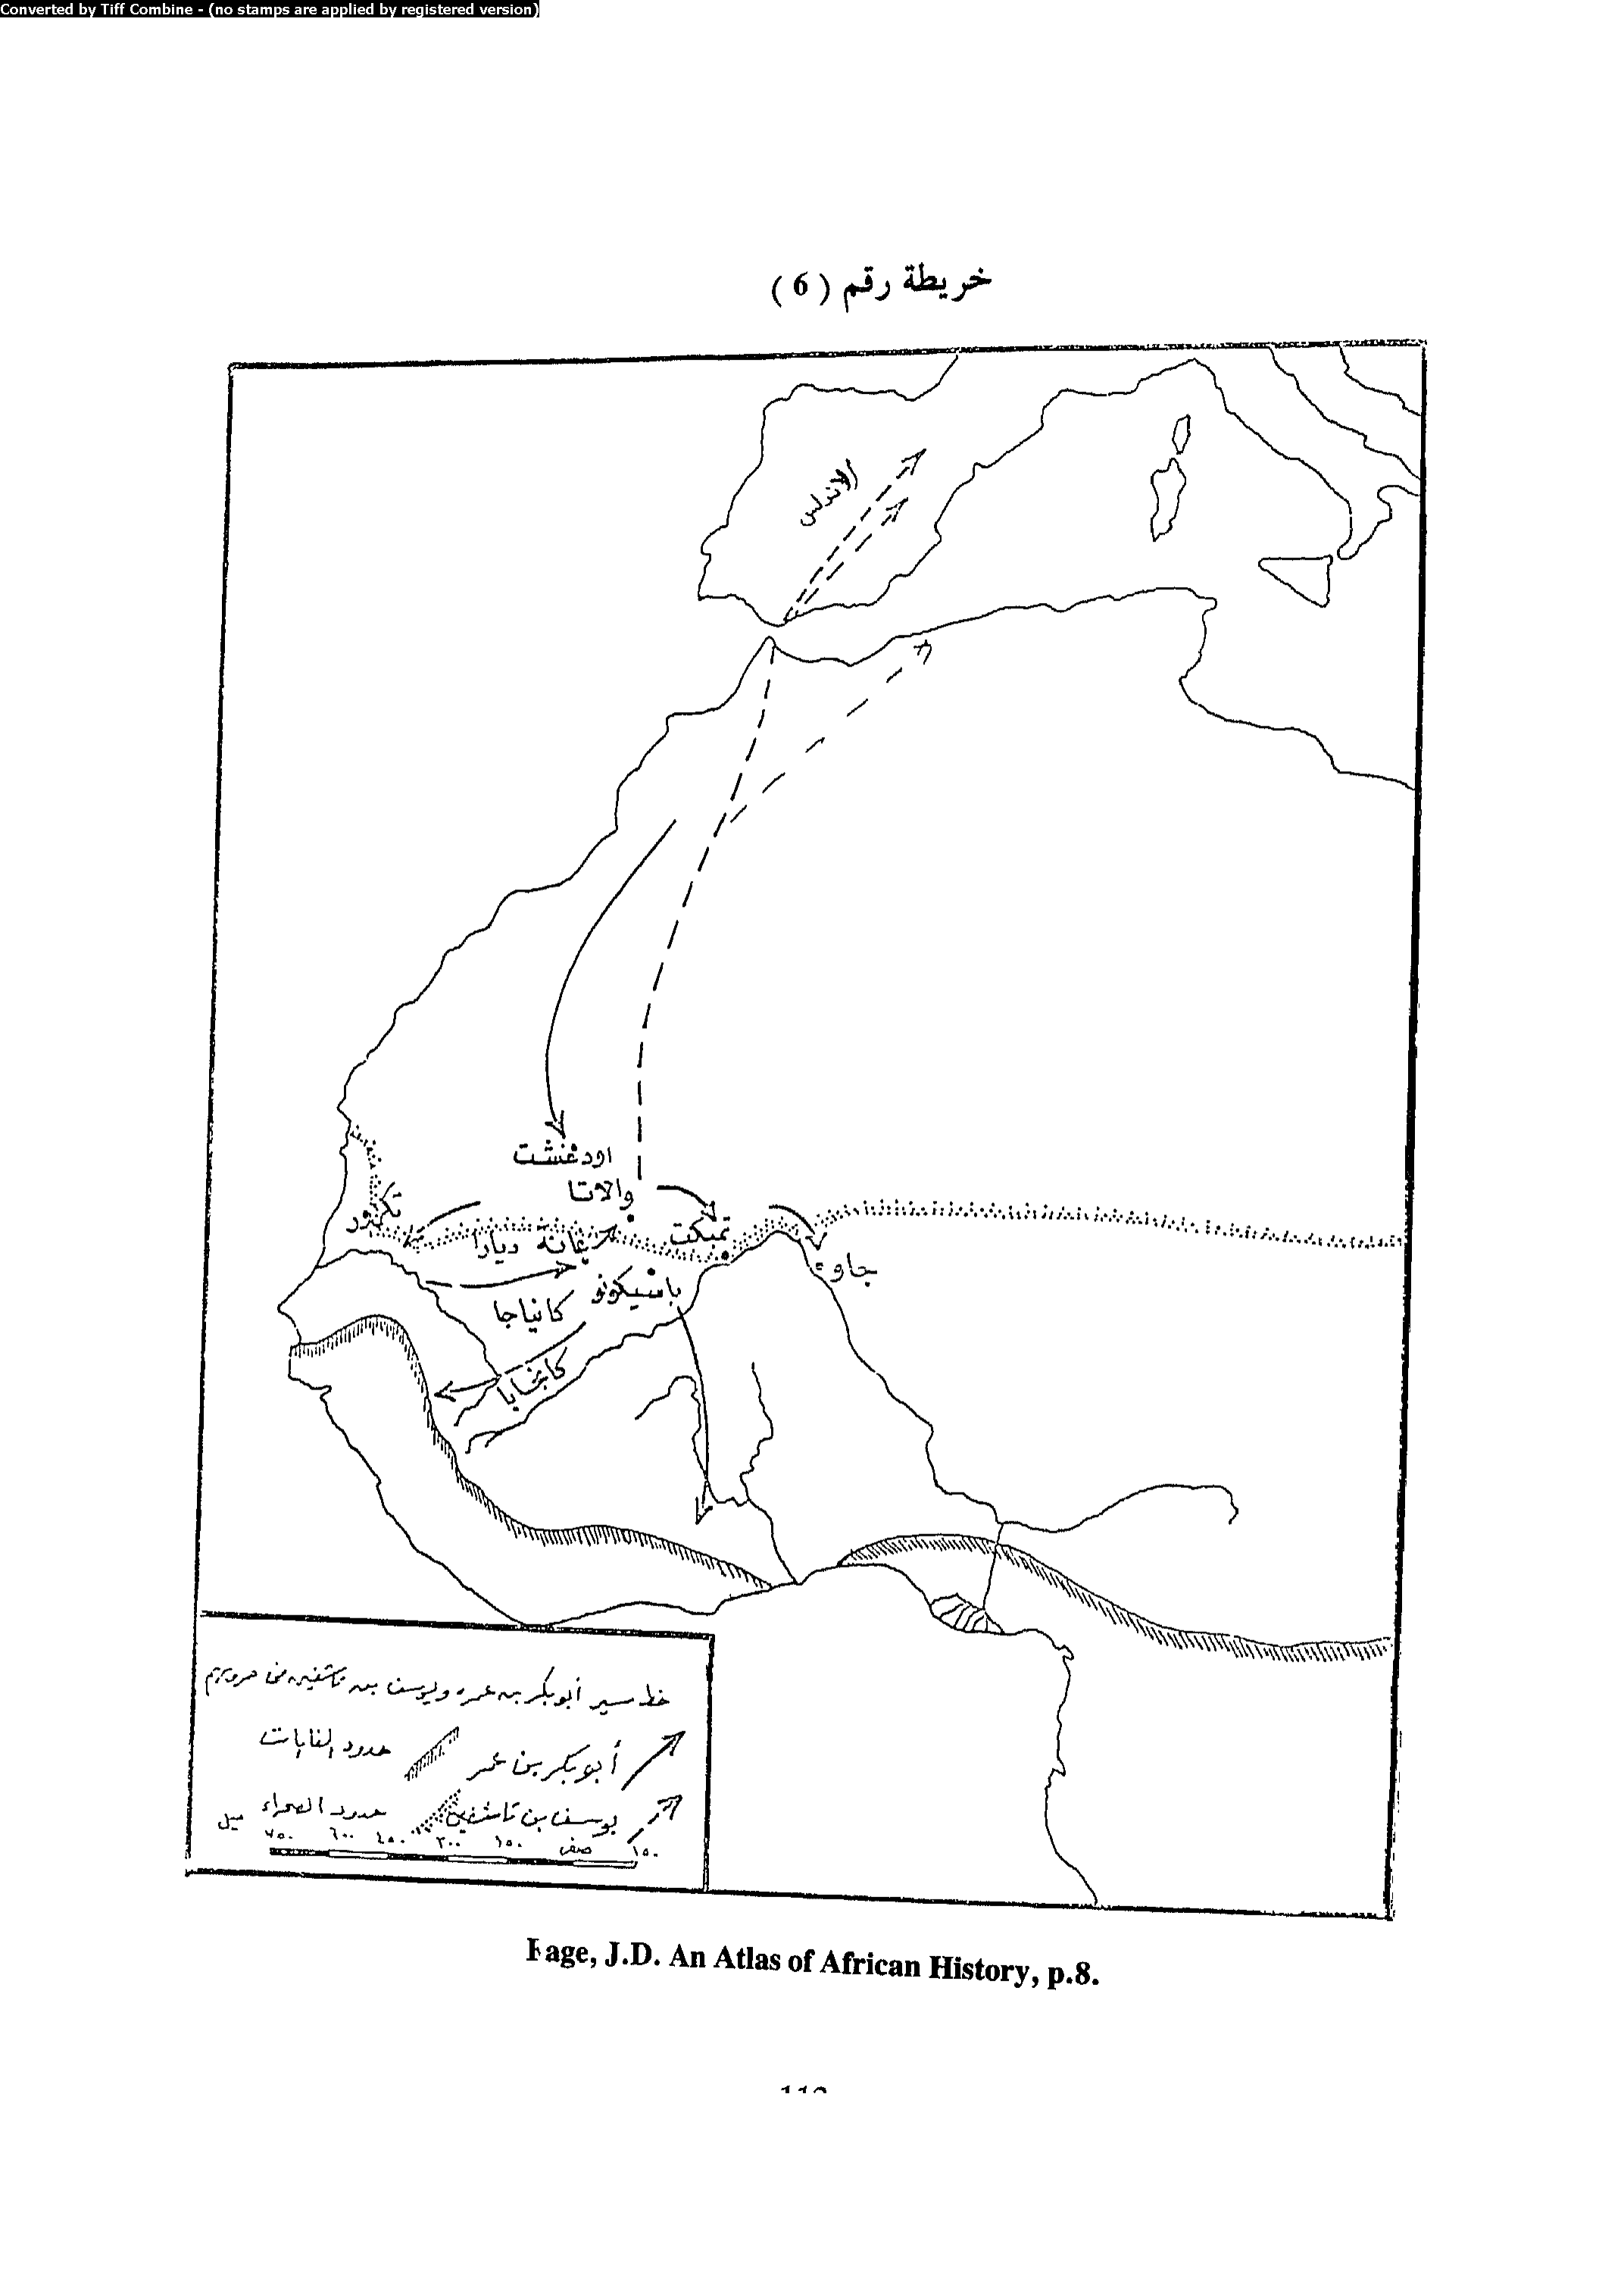 Converted by Tiff Combine - (no stamps are applied by registered version)
خريطة رقم ( 6 )
الاندلس
اودغشت
والاتا
تكرور
غانة
ديارا
تمبكت
جاوه
باسيكونو
كانياجا
كانجابا
خط سير أبو بكر بن عمر ويوسف بن تاشفين في
حدود الغابات
أبو بكر بن عمر
حدود الصحراء
يوسف بن تاشفين
ميل ٧٥٠ ٦٠٠ ٤٥٠ ٣٠٠ ١٥٠ صفر ١٥٠
Fage, J.D. An Atlas of African History, p.8.